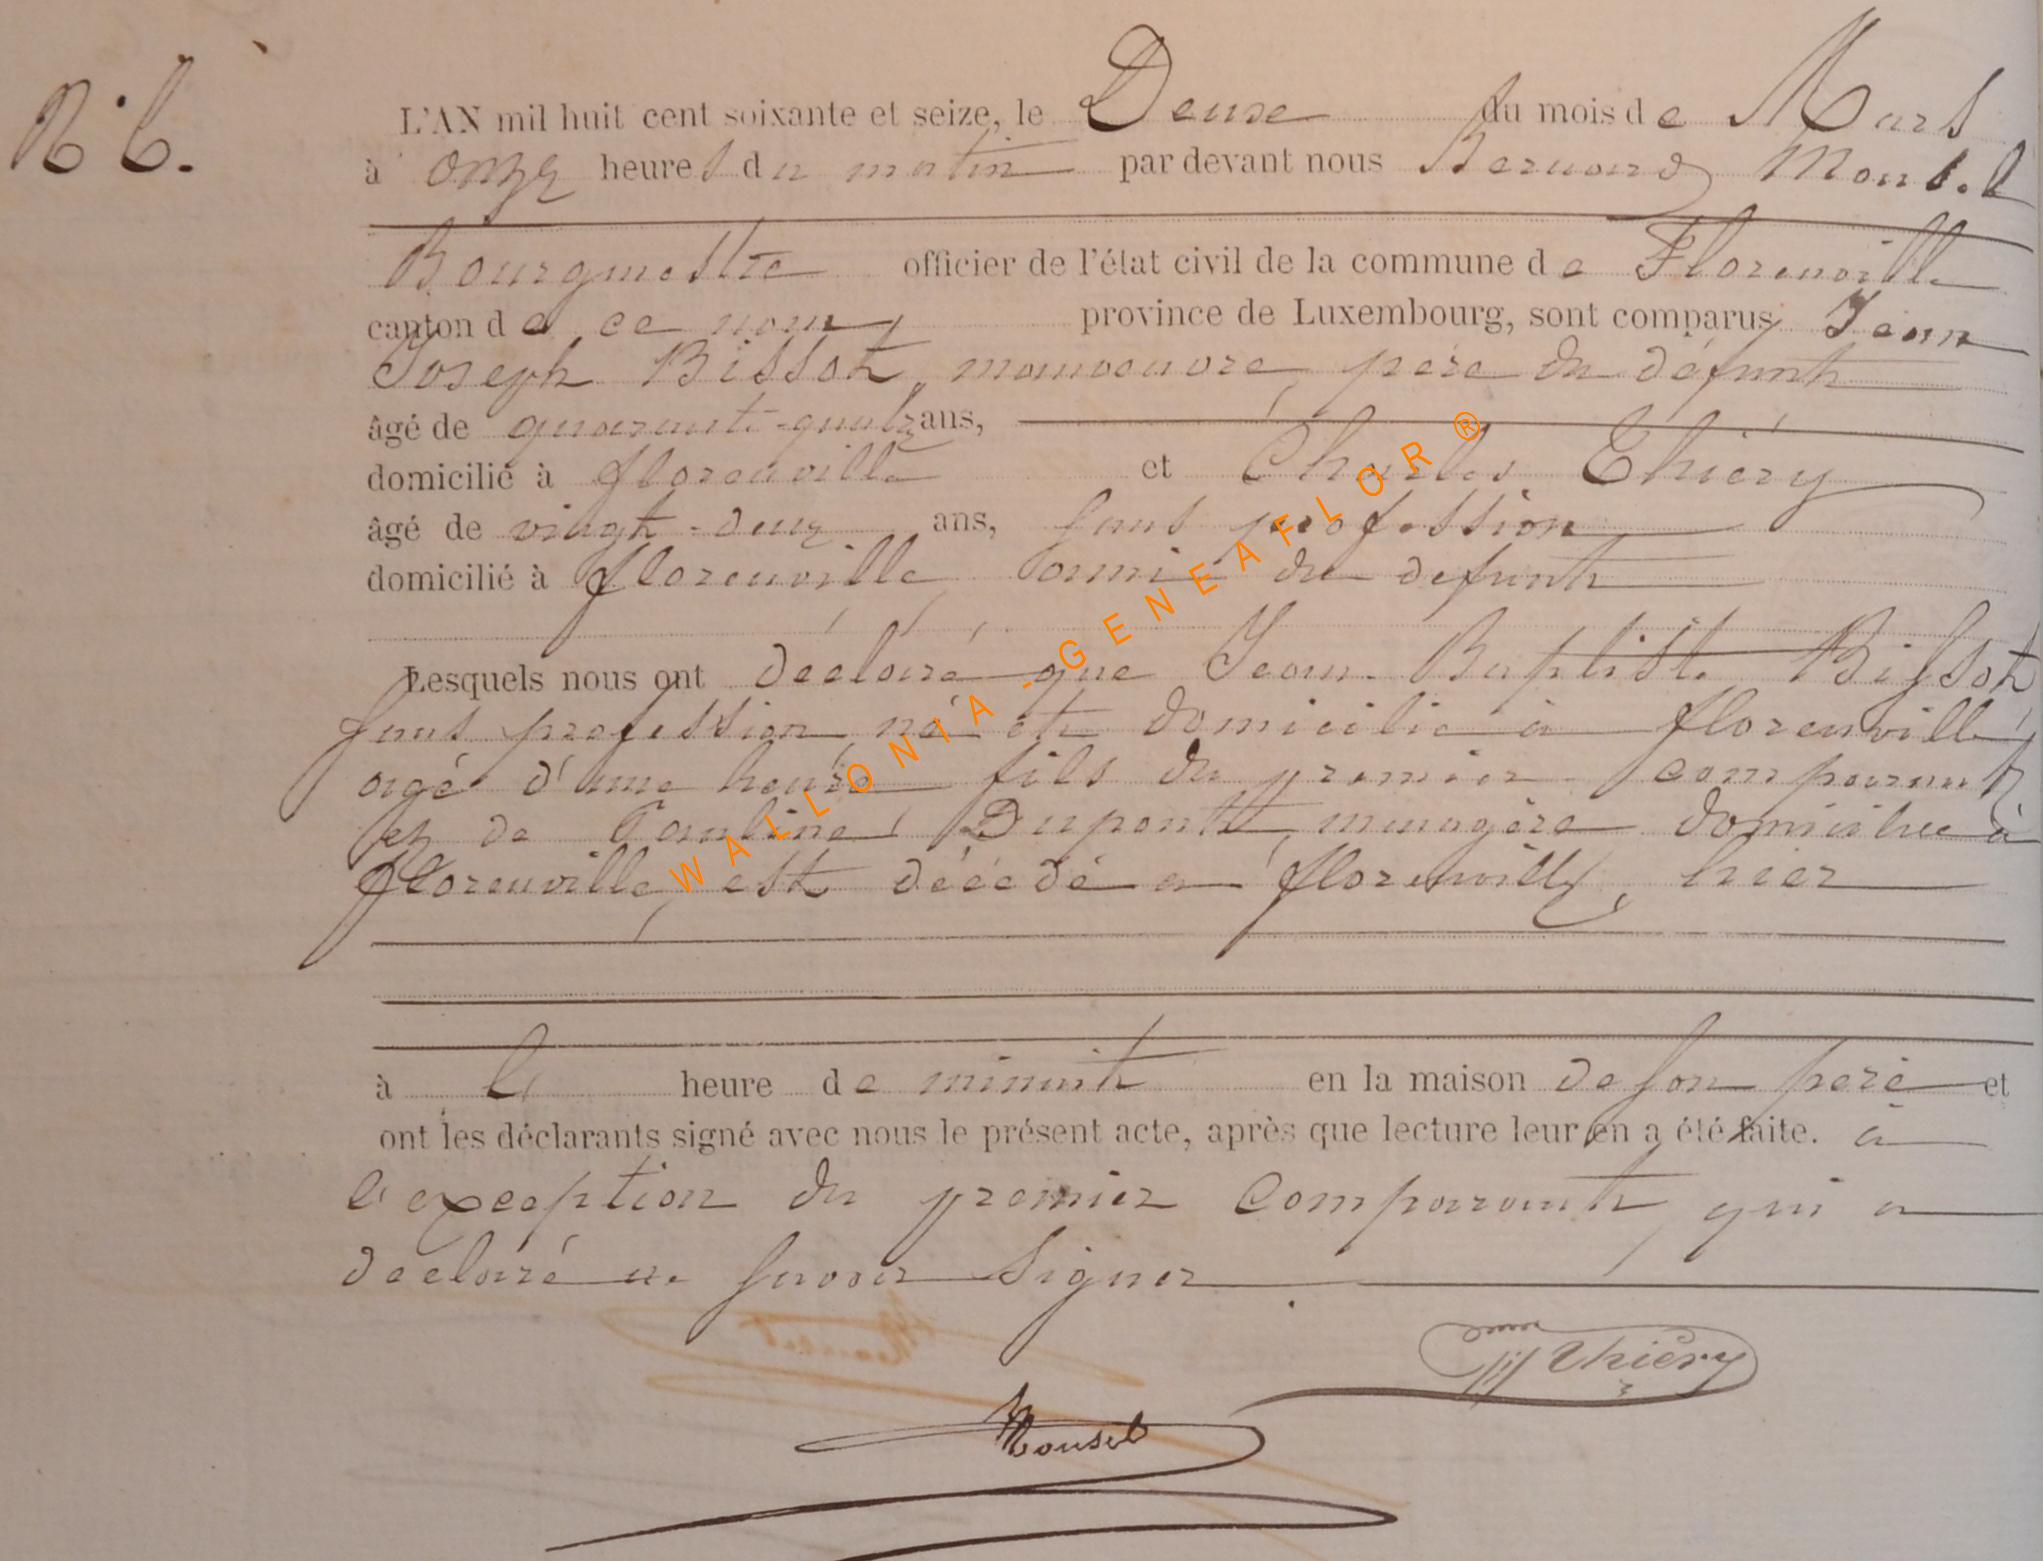 N° 6.
L'AN mil huit cent soixante et seize, le Deuxe du mois de Mars
à onze heures du matin par devant nous Bernard Mousel
Bourgmestre officier de l'état civil de la commune de Florenville
canton de ce nom, province de Luxembourg, sont comparus Jean
Joseph Bissot, manoeuvre, père du défunt
âgé de quarante-quatre ans,
domicilié à florenville et Charles Thiéry
âgé de vingt-deux ans, sans profession
domicilié à florenville, ami du defunt
Lesquels nous ont déclaré que Jean-Baptiste Bissot
sans profession né et domicilié à florenville,
agé d'une heure fils du premier comparant
et de Pauline Dupont, menagère domiciliée à
florenville, est décédé a florenville, hier
à heure de minuit en la maison de son père et
ont les déclarants signé avec nous le présent acte, après que lecture leur en a été faite. à
l'exception du premier comparant, qui a
declaré ne savoir signer
Thiéry
Mousel
WALLONIA - GENEAFLOR ®